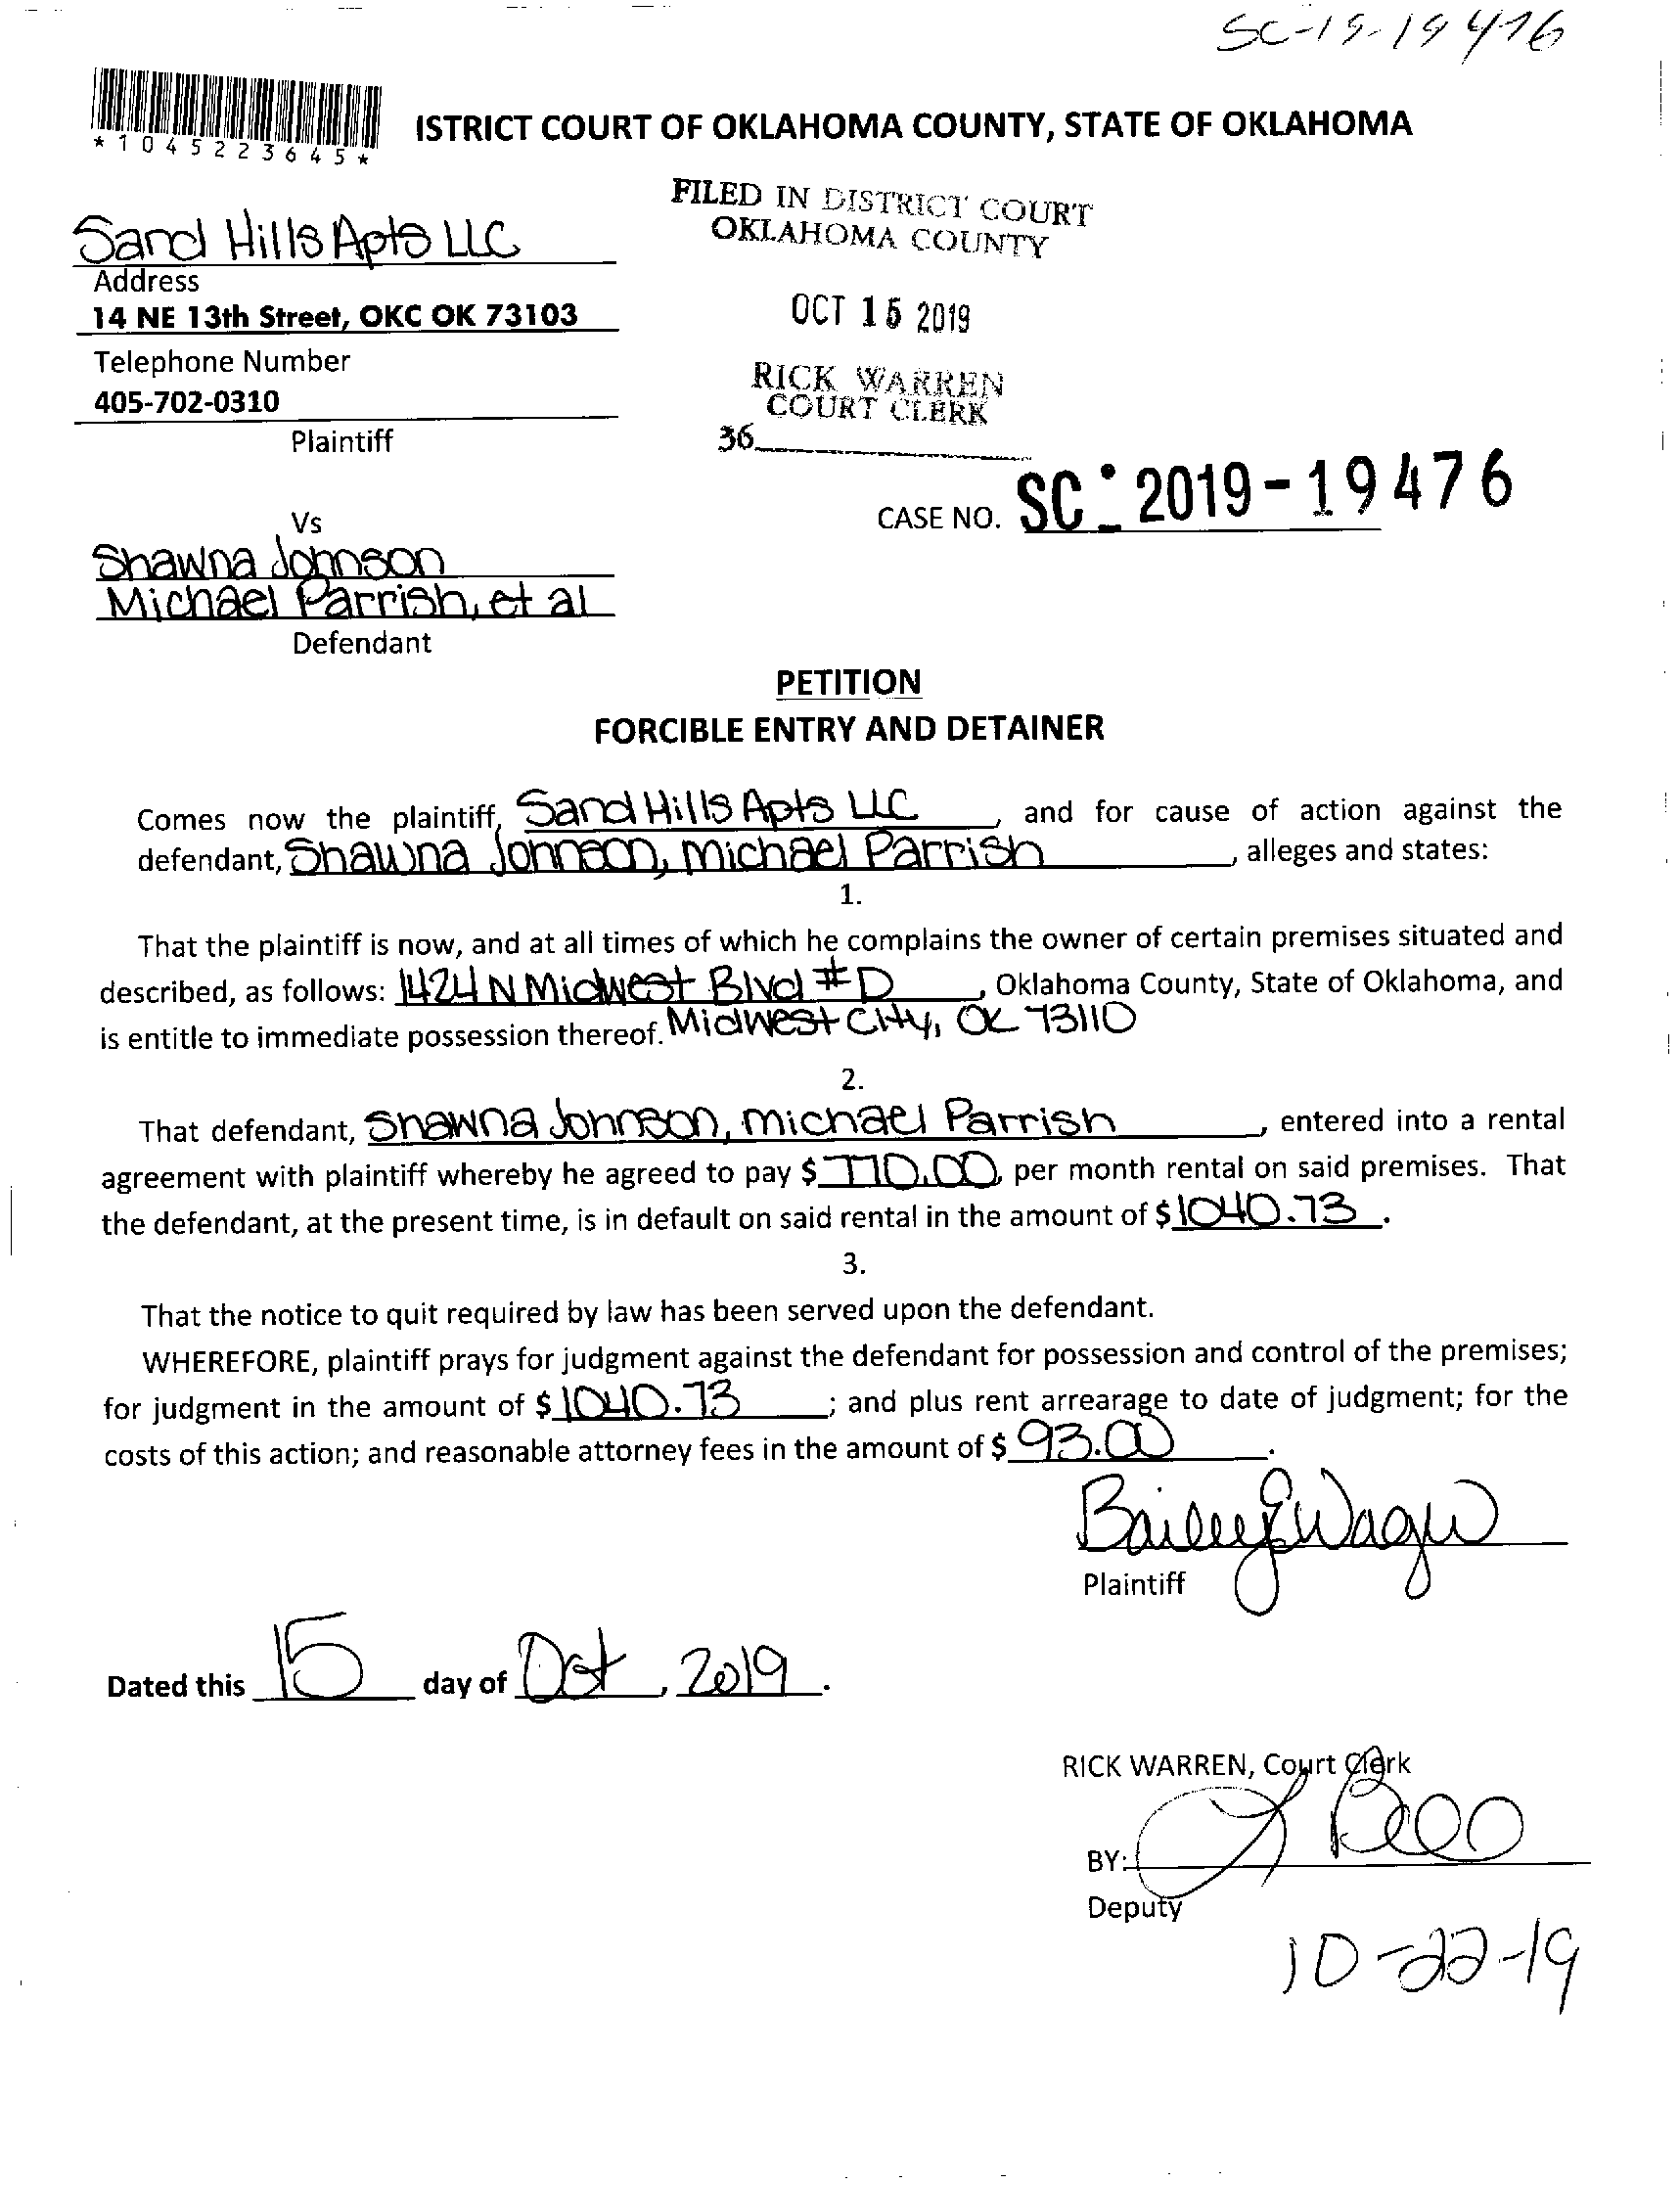 SC-19-19476
*1045223645*
ISTRICT COURT OF OKLAHOMA COUNTY, STATE OF OKLAHOMA
FILED IN DISTRICT COURT
OKLAHOMA COUNTY
Sand Hills Apts LLC
Address
14 NE 13th Street, OKC OK 73103
OCT 15 2019
Telephone Number
405-702-0310
RICK WARREN
COURT CLERK
Plaintiff
36
CASE NO. SC-2019-19476
Vs
Shawna Johnson
Michael Parrish, et al
Defendant
PETITION
FORCIBLE ENTRY AND DETAINER
Comes now the plaintiff, Sand Hills Apts LLC, and for cause of action against the
defendant, Shawna Johnson, Michael Parrish, alleges and states:
1.
That the plaintiff is now, and at all times of which he complains the owner of certain premises situated and
described, as follows: 1424 N Midwest Blvd #D, Oklahoma County, State of Oklahoma, and
is entitle to immediate possession thereof. Midwest City, OK 73110
2.
That defendant, Shawna Johnson, Michael Parrish, entered into a rental
agreement with plaintiff whereby he agreed to pay $ 770.00, per month rental on said premises. That
the defendant, at the present time, is in default on said rental in the amount of $ 1040.73.
3.
That the notice to quit required by law has been served upon the defendant.
WHEREFORE, plaintiff prays for judgment against the defendant for possession and control of the premises;
for judgment in the amount of $ 1040.73; and plus rent arrearage to date of judgment; for the
costs of this action; and reasonable attorney fees in the amount of $ 93.00.
Bailey
Plaintiff
Dated this 15 day of Oct, 2019.
RICK WARREN, Court Clerk
BY:
Deputy
10-22-19